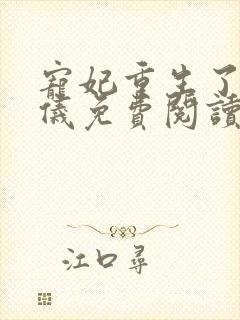 寵妃重生了
儀免費閱讀
江口尋